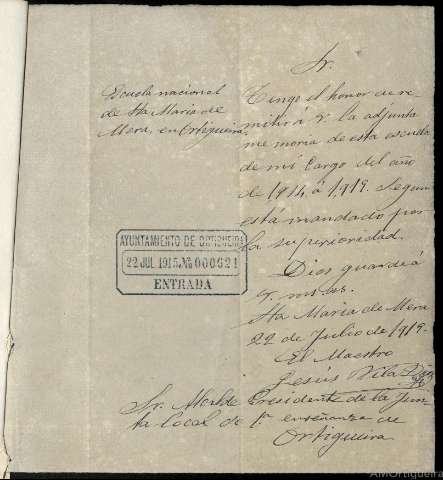 Escuela nacional
de Sta Maria de
Mera, en Ortigueira.
Sr.
Tengo el honor de re
mitir á V. la adjunta
memoria de esta escuela
de mi cargo del año
de 1914 á 1915. Segun
está mandado por
la superioridad.
Dios guarde á
V. ms as.
Sta Maria de Mera
22 de Julio de 1915.
El Maestro
Jesús Vila
AYUNTAMIENTO DE ORTIGUEIRA
22 JUL 1915 No 000621
ENTRADA
Sr. Alcalde Presidente de la Jun
ta local de 1a enseñanza de
Ortigueira
AMOrtigueira